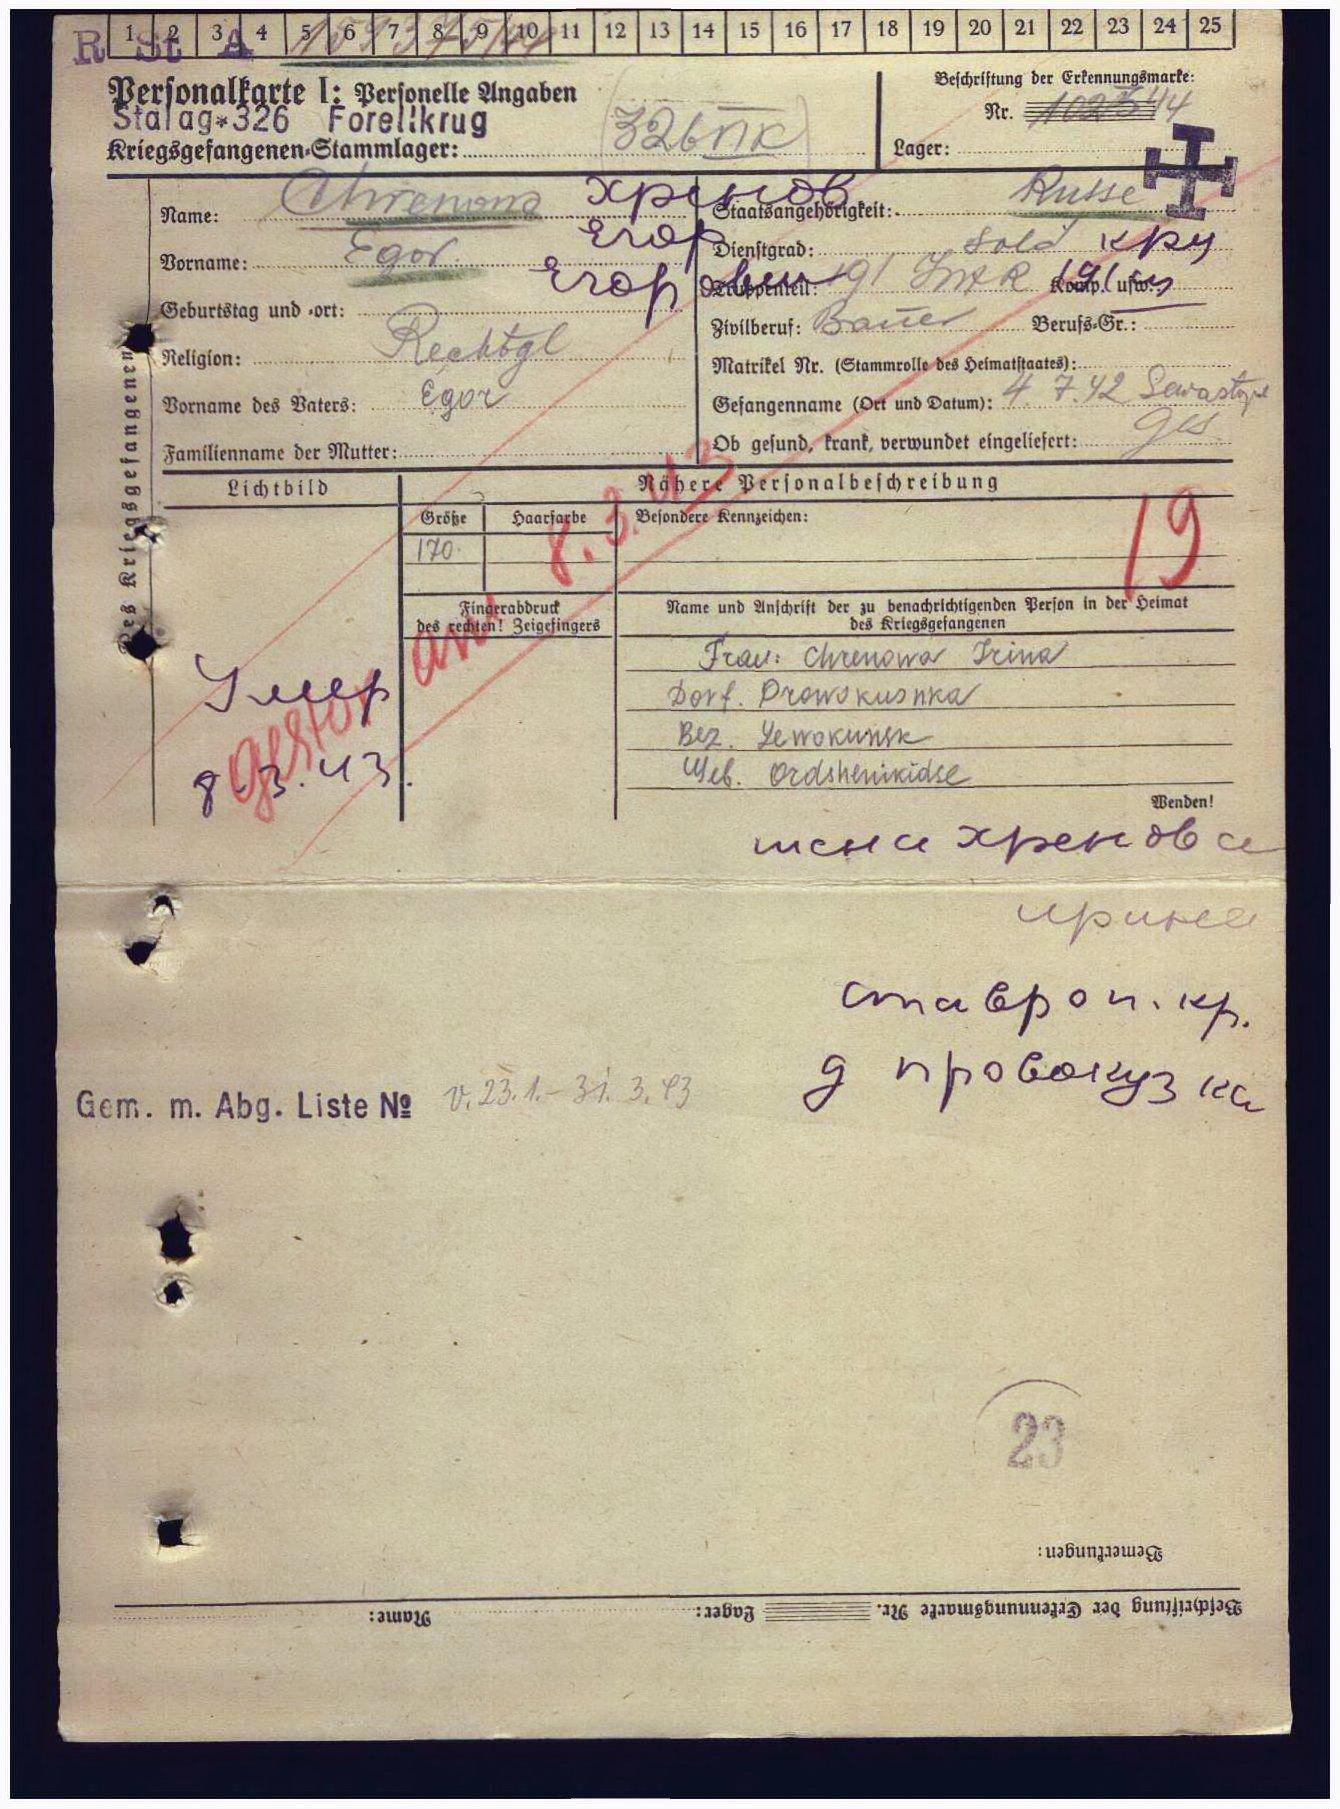 1 2 3 4 5 6 7 8 9 10 11 12 13 14 15 16 17 18 19 20 21 22 23 24 25
R St A
Personalkarte I: Personelle Angaben
Beschriftung der Erkennungsmarke:
Stalag*326 Forellkrug
Nr. 102344
Kriegsgefangenen-Stammlager: 326 VI K
Lager:
Name: Chrenow Хренов
Staatsangehörigkeit: Russe
Vorname: Egor Егор
Dienstgrad: Sold кр
Егор
Truppenteil: 191 Komp. usw.: 191
Geburtstag und -ort:
Zivilberuf: Bauer Berufs-Gr.:
Religion: Rechtgl
Matrikel Nr. (Stammrolle des Heimatstaates):
Vorname des Vaters: Egor
Gefangenname (Ort und Datum): 4 7.42 Sewastopol
Familienname der Mutter:
Ob gesund, krank, verwundet eingeliefert: ges
Des Kriegsgefangenen
Lichtbild
Nähere Personalbeschreibung
Größe Haarfarbe Besondere Kennzeichen:
170
8.3.43
19
Fingerabdruck
des rechten! Zeigefingers
Name und Anschrift der zu benachrichtigenden Person in der Heimat
des Kriegsgefangenen
am
Frau: Chrenowa Irina
Умер
Dorf. Prowskusnka
gestor
Bez.
8.3.43.
Geb. Ordshenikidse
Wenden!
жена хренова
ирина
ставроп. кр.
д провокузка
Gem. m. Abg. Liste № v. 23.1.-31.3.43
23
Bemerkungen:
Beschriftung der Erkennungsmarke Nr. Lager: Name: